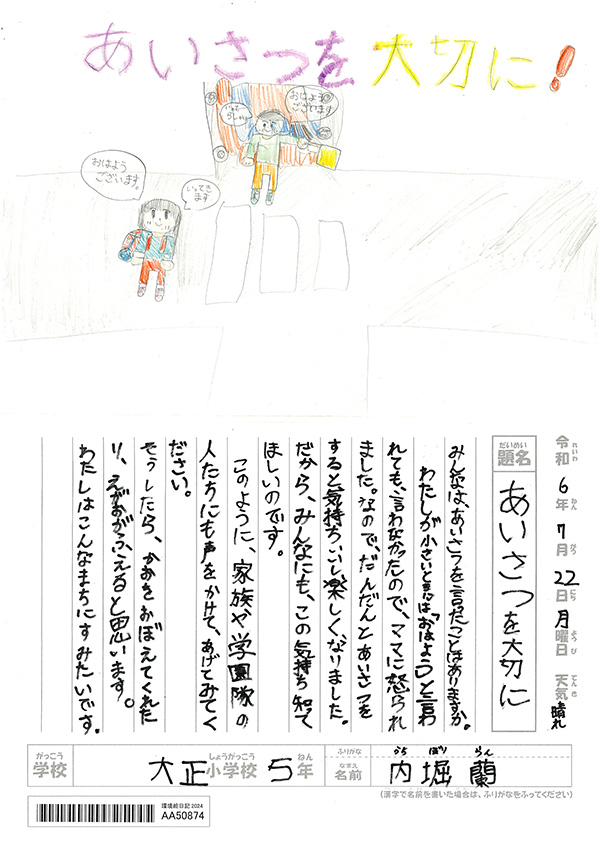 あいさつを大切に!
おはよう
ございます
いってら
っしゃい
おはよう
ございます。
いってき
ます
令和6年7月22日月曜日 天気 晴れ
れいわ ねん がつ にち ようび てんき
だいめい
題名 あいさつを大切に
みんなは、あいさつを言ったことはありますか。
わたしが小さいときは「おはよう」と言わ
れても、言わなかったので、ママに怒られ
ました。なので、だんだんとあいさつを
すると気持ちいいし楽しくなりました。
だから、みんなにも、この気持ち知って
ほしいのです。
このように、家族や学園隊の
人たちにも声をかけて、あげてみてく
ださい。
そうしたら、かおをおぼえてくれた
り、えがおがふえると思います。
わたしはこんなまちにすみたいです。
がっこう しょうがっこう ねん
学校 大正小学校 5年
ふりがな うち ぼり らん
なまえ
名前 内堀 蘭
(漢字で名前を書いた場合は、ふりがなをふってください)
環境絵日記2024
AA50874